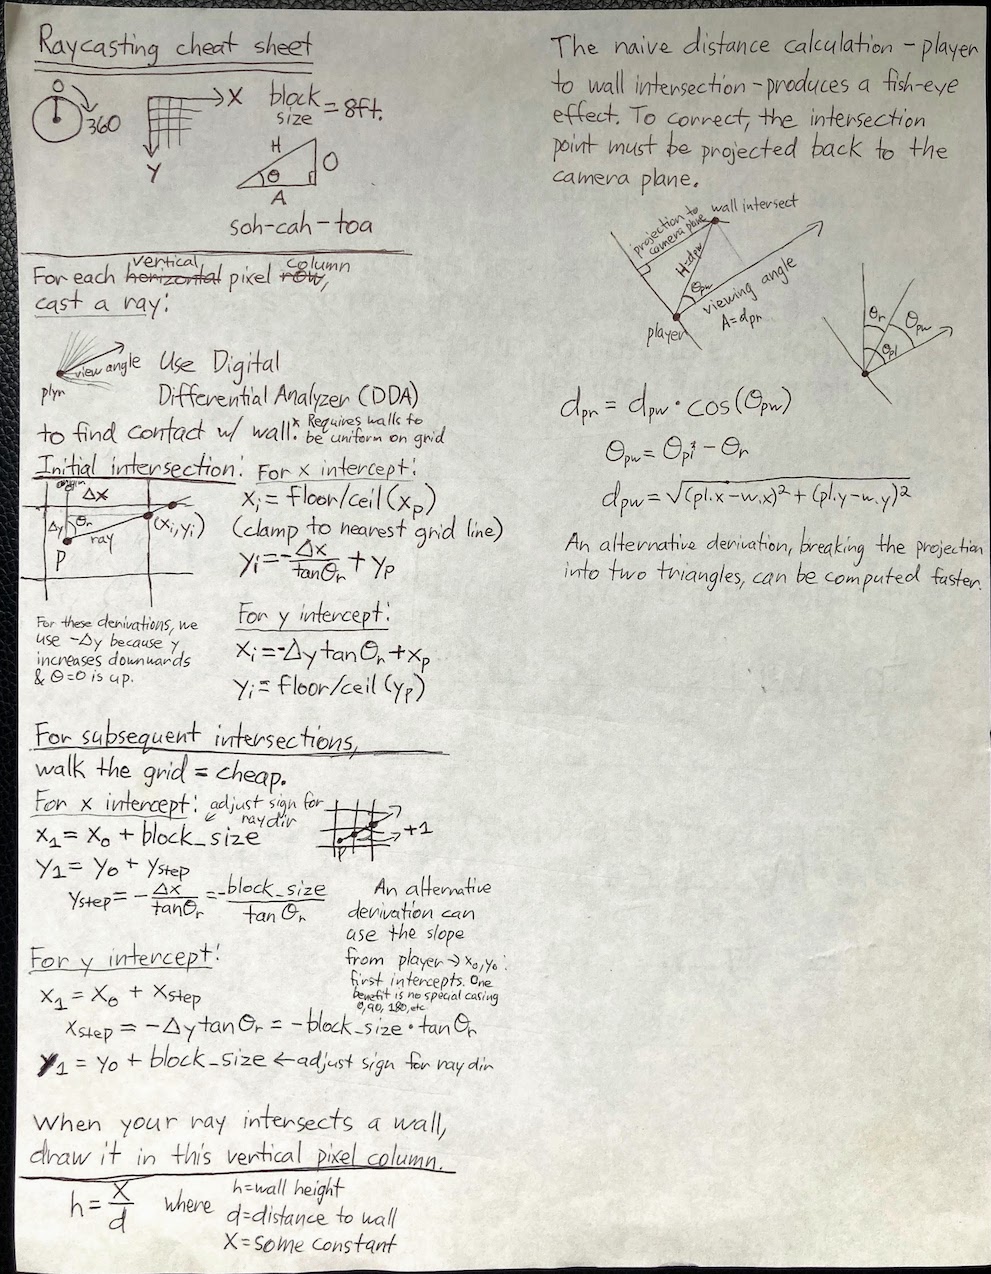 Raycasting cheat sheet
0
360
X
Y
block size = 8ft.
H
O
θ
A
soh-cah-toa
For each horizontal vertical pixel row column,
cast a ray:
view angle
plyr
Use Digital
Differential Analyzer (DDA)
to find contact w/ wall.* *Requires walls to
be uniform on grid
Initial intersection: For x intercept:
Δx
Δy
θr
ray
P
(xi,yi)
xi = floor/ceil(xp)
(clamp to nearest grid line)
yi = -Δx/tanθr + yp
For y intercept:
xi = -Δy tanθr + xp
yi = floor/ceil(yp)
For these derivations, we
use -Δy because y
increases downwards
& θ=0 is up.
For subsequent intersections,
walk the grid = cheap.
For x intercept: adjust sign for
ray dir
x1 = x0 + block_size
+1
P
y1 = y0 + ystep
ystep = -Δx/tanθr = -block_size/tanθr
An alternative
derivation can
use the slope
from player → x0,y0:
first intercepts. One
benefit is no special casing
0,90,180,etc
For y intercept:
x1 = x0 + xstep
xstep = -Δy tanθr = -block_size · tanθr
y1 = y0 + block_size ← adjust sign for ray dir
When your ray intersects a wall,
draw it in this vertical pixel column.
h = X/d where
h=wall height
d=distance to wall
X=some constant
The naive distance calculation - player
to wall intersection - produces a fish-eye
effect. To correct, the intersection
point must be projected back to the
camera plane.
projection to
camera plane
wall intersect
H=dpw
θpw
viewing angle
A=dpr
player
θr
θpw
θpl
dpr = dpw · cos(θpw)
θpw = θpl - θr
dpw = √(pl.x-w.x)² + (pl.y-w.y)²
An alternative derivation, breaking the projection
into two triangles, can be computed faster.